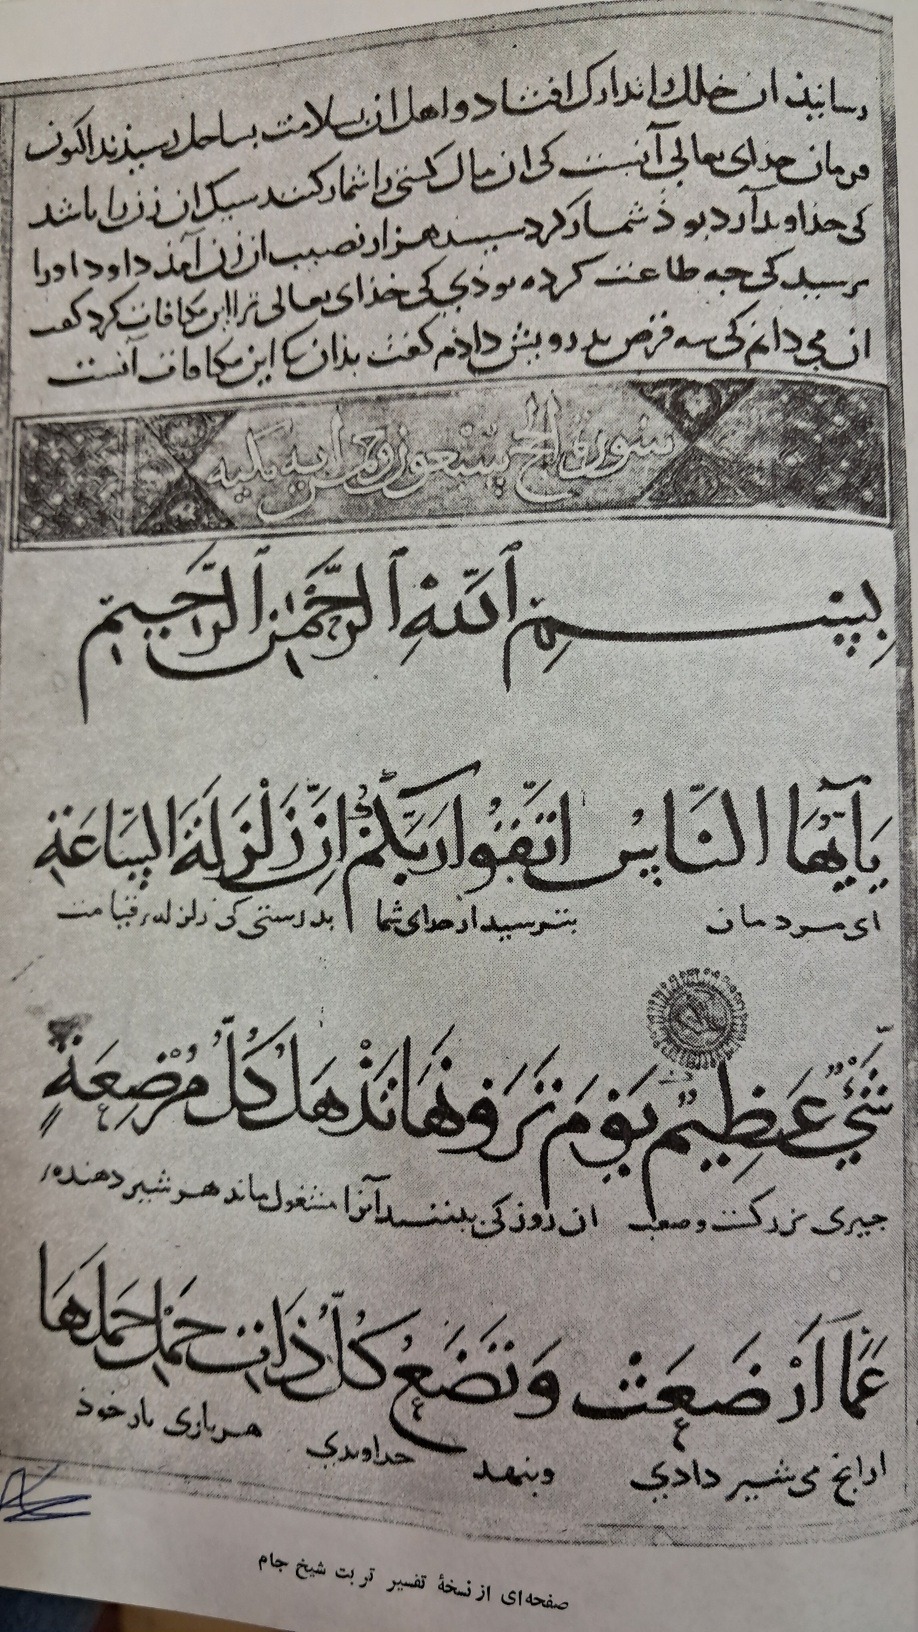 رسانیذ ان خلل را تدارک افتاد و اهل ان بسلامت بساحل رسیذند اکنون
فرمان خدای تعالی آنست کی ان مال کشتی را شمار کنند سیک ان زن را باشد
کی خداوند آرد بوذ شمار کرد سیصد هزار نصیب ان زن آمذ داود اورا
برسید کی جه طاعت کرده بوذی کی خذای تعالی ترا این مکافات کرد گفت
ان می دانم کی سه قرص بدرویش داذم گفت بذان کا این مکافات آنست
سورة الحج سبعون و ایه مکیه
بِسْمِ ٱللَّهِ ٱلرَّحْمٰنِ ٱلرَّحِيمِ
يَاأَيُّهَا النَّاسُ اتَّقُوا رَبَّكُمْ إِنَّ زَلْزَلَةَ السَّاعَةِ
ای مردمان بترسید از خدای شما بدرستی کی زلزله قیامت
شَيْءٌ عَظِيمٌ يَوْمَ تَرَوْنَهَا تَذْهَلُ كُلُّ مُرْضِعَةٍ
جیزی بزرکست وصعب ان روز کی بینند آنرا مشغول ماند هر شیر دهنده
عَمَّا أَرْضَعَتْ وَتَضَعُ كُلُّ ذَاتِ حَمْلٍ حَمْلَهَا
ازانج می شیر دادی وبنهد خداوندی هر باری بار خوذ
صفحه‌ای از نسخهٔ تفسیر تربت شیخ جام